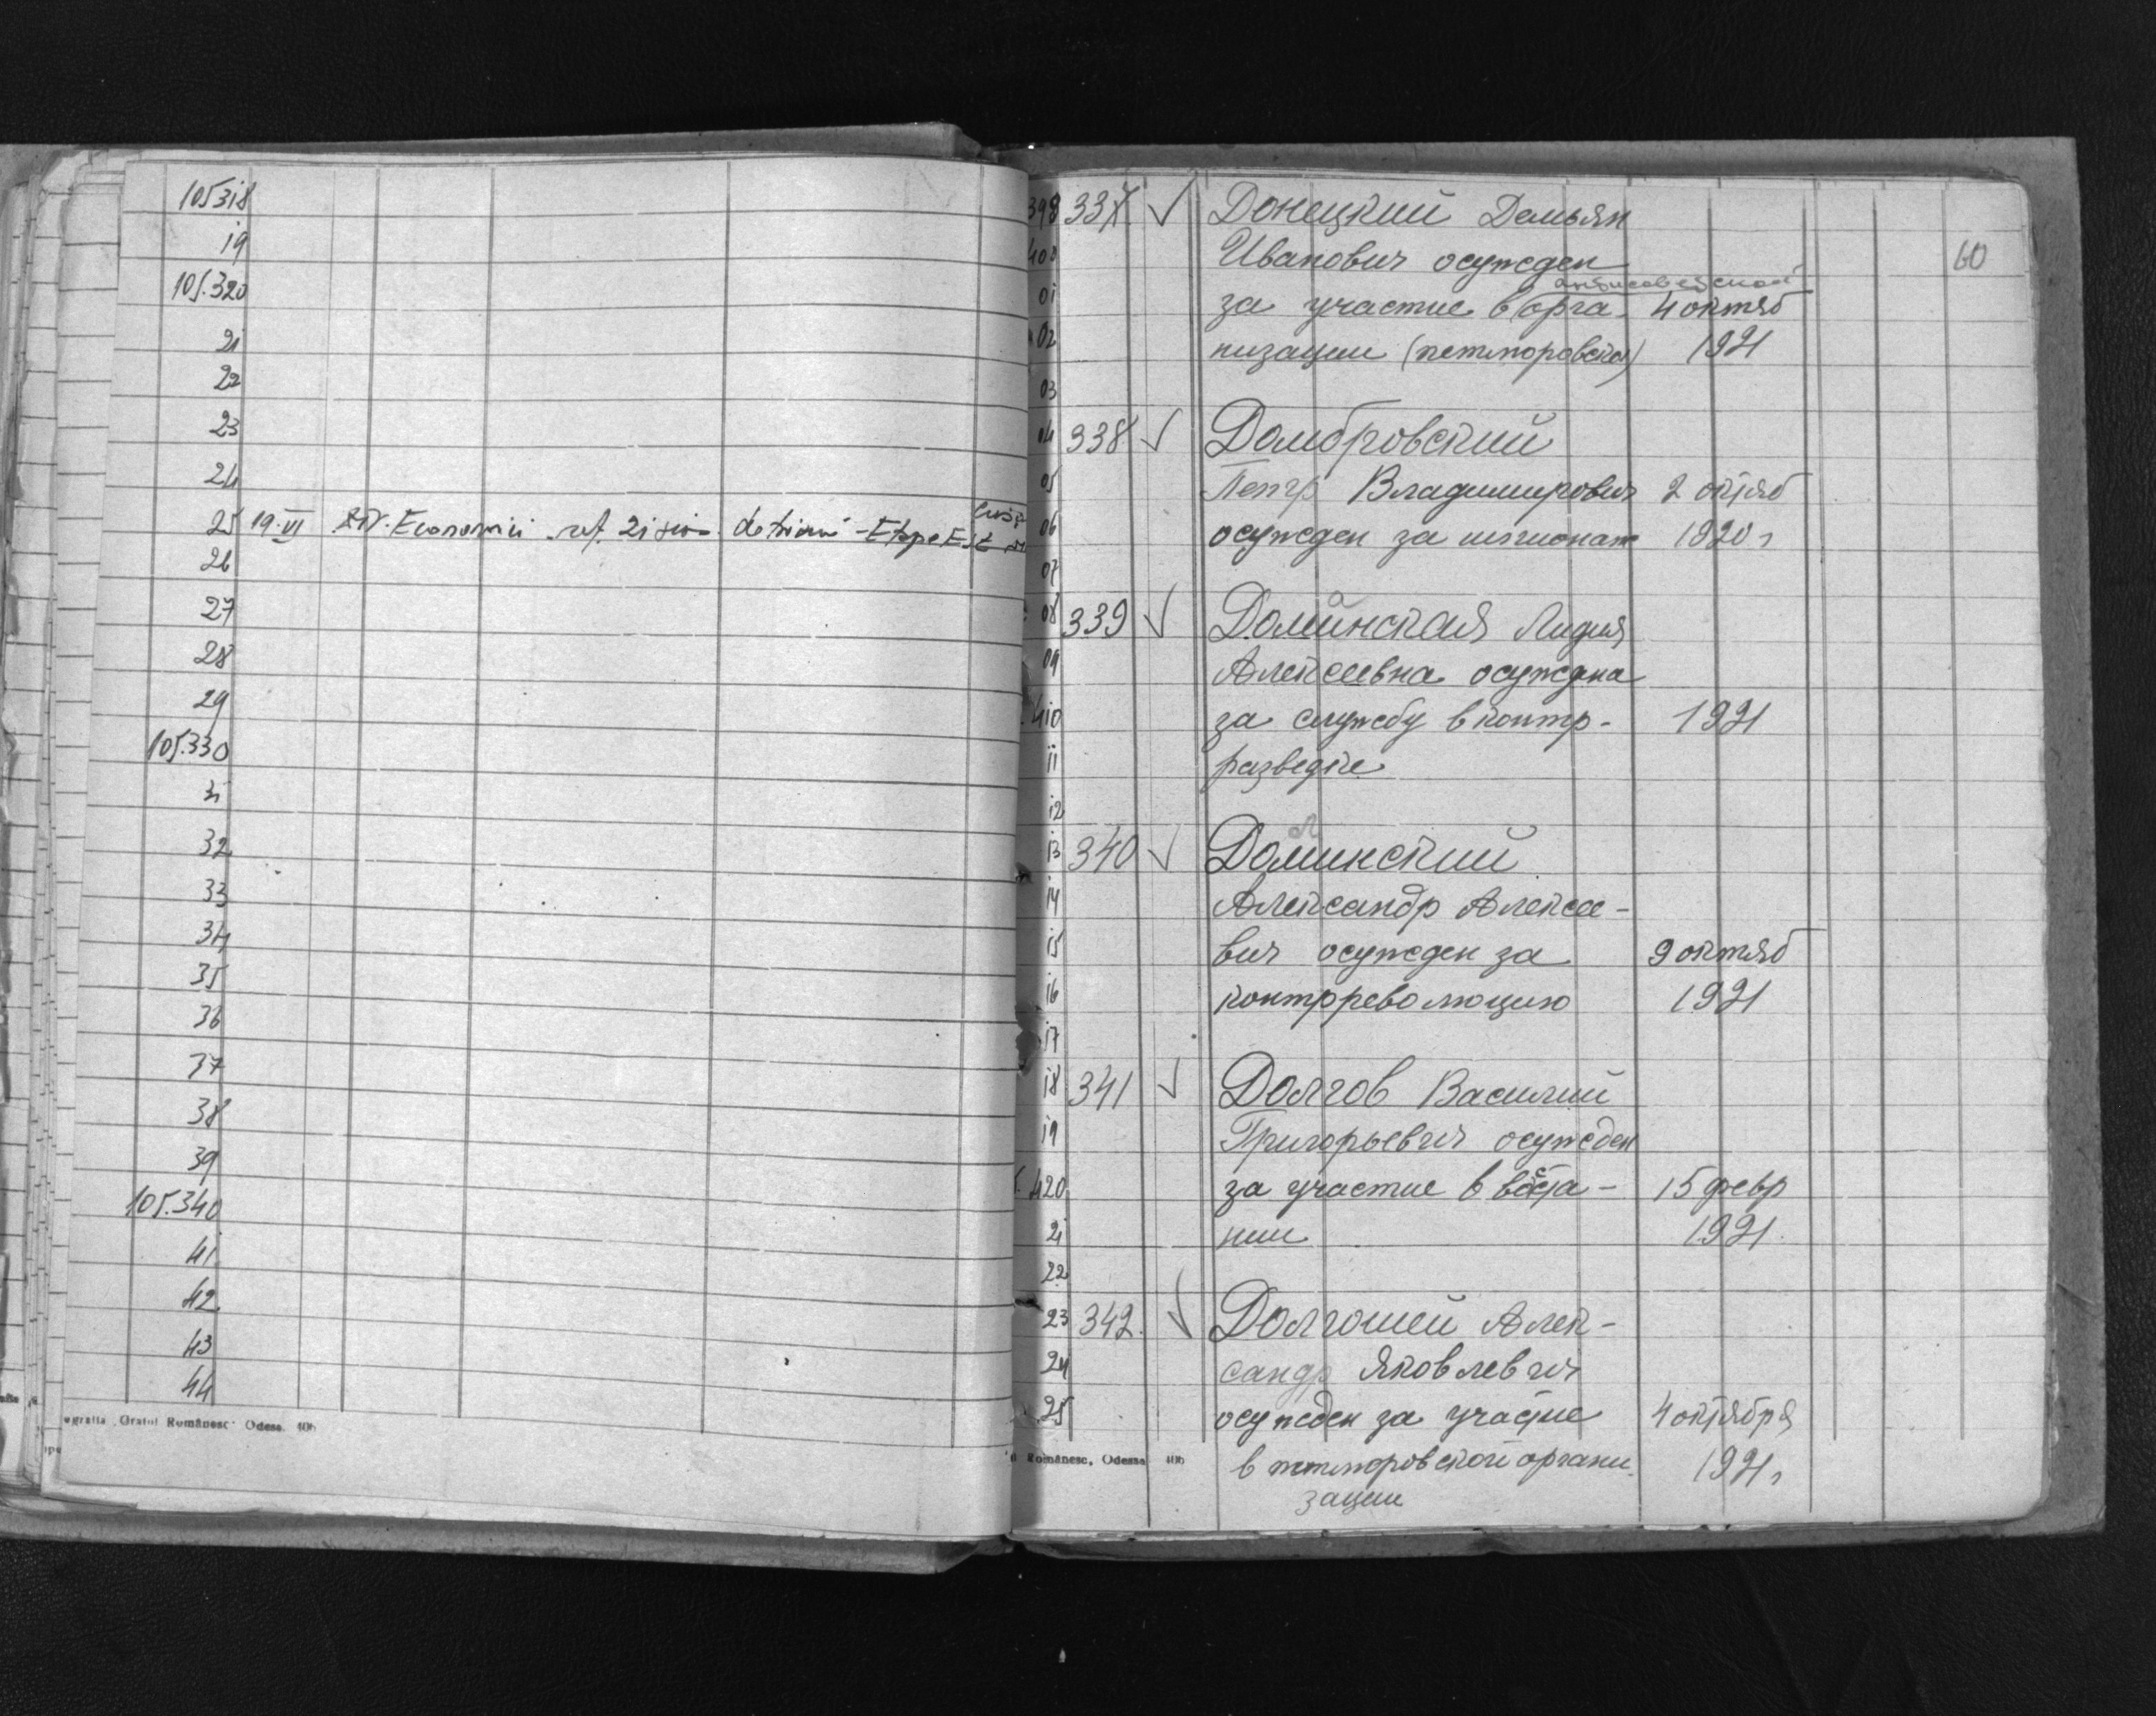 105318
19
105.320
21
22
23
24
25 19.VI Economici ref. Etape Est
26
27
28
29
105.330
31
32
33
34
35
36
37
38
39
105.340
41
42
43
44
"Graiul Românesc" Odesa. 406
60
398 337. √ Донецкий Демьян
400 Иванович осужден
антисоветской
01 за участие в орга- 4 октяб
02 низации (петлюровска) 1921
03
04 338 √ Домбровский
05 Петр Владимирович 2 октяб
06 осужден за шпионаж 1920 г
07
08 339 √ Доминская Лидия
09 Алексеевна осуждена
410 за службу в контр- 1921
11 разведке
12
13 340 √ Доминский
14 Александр Алексее-
15 вич осужден за 9 октяб
16 контрреволюцию 1921
17
18 341 √ Долгов Василий
19 Григорьевич осужден
420 за участие в восста- 15 февр
21 нии 1921.
22
23 342. √ Долгошей Алек-
24 сандр Яковлевич
25 осужден за участие 4 октября
в петлюровской органи- 1921 г
зации
Românesc, Odessa 406